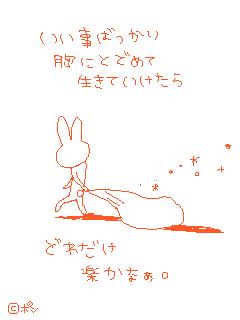 いい事ばっかり
胸にとどめて
生きていけたら
どれだけ
楽かなぁ。
©ポシ